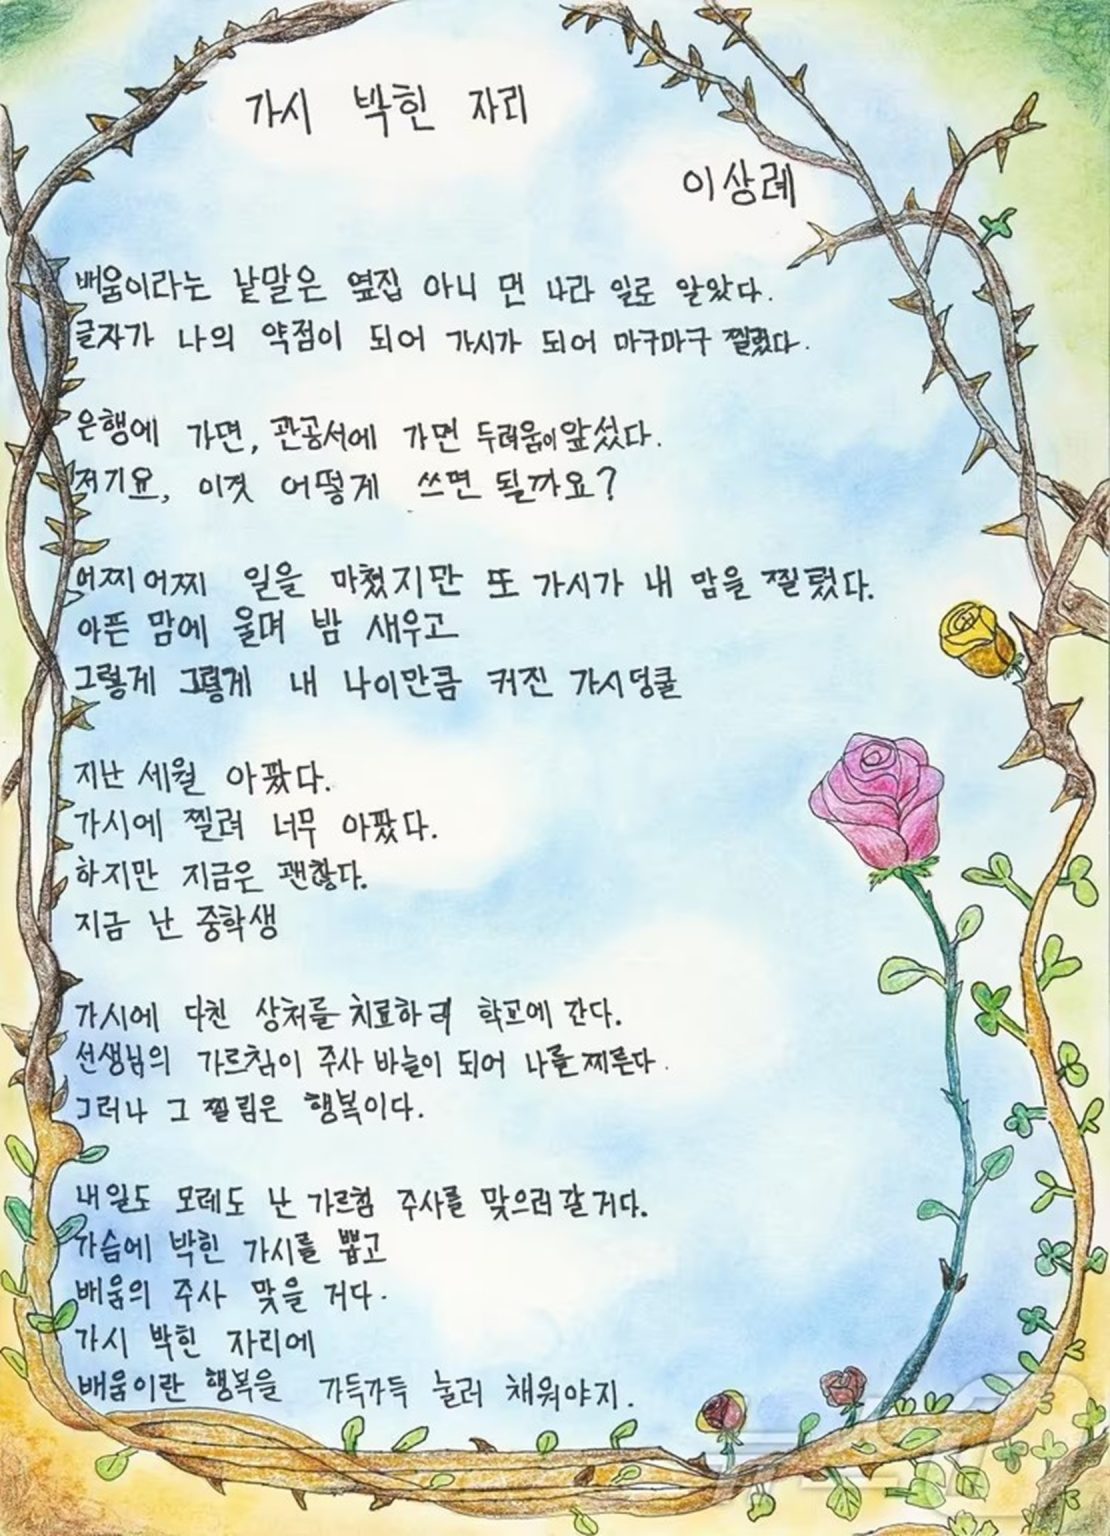 가시 박힌 자리
이상례
배움이라는 낱말은 옆집 아니 먼 나라 일로 알았다.
글자가 나의 약점이 되어 가시가 되어 마구마구 찔렀다.
은행에 가면, 관공서에 가면 두려움이 앞섰다.
저기요, 이것 어떻게 쓰면 될까요?
어찌어찌 일을 마쳤지만 또 가시가 내 맘을 찔렀다.
아픈 맘에 울며 밤 새우고
그렇게 그렇게 내 나이만큼 커진 가시덩쿨
지난 세월 아팠다.
가시에 찔려 너무 아팠다.
하지만 지금은 괜찮다.
지금 난 중학생
가시에 다친 상처를 치료하러 학교에 간다.
선생님의 가르침이 주사 바늘이 되어 나를 찌른다.
그러나 그 찔림은 행복이다.
내일도 모레도 난 가르침 주사를 맞으러 갈 거다.
가슴에 박힌 가시를 뽑고
배움의 주사 맞을 거다.
가시 박힌 자리에
배움이란 행복을 가득가득 눌러 채워야지.
뉴스1